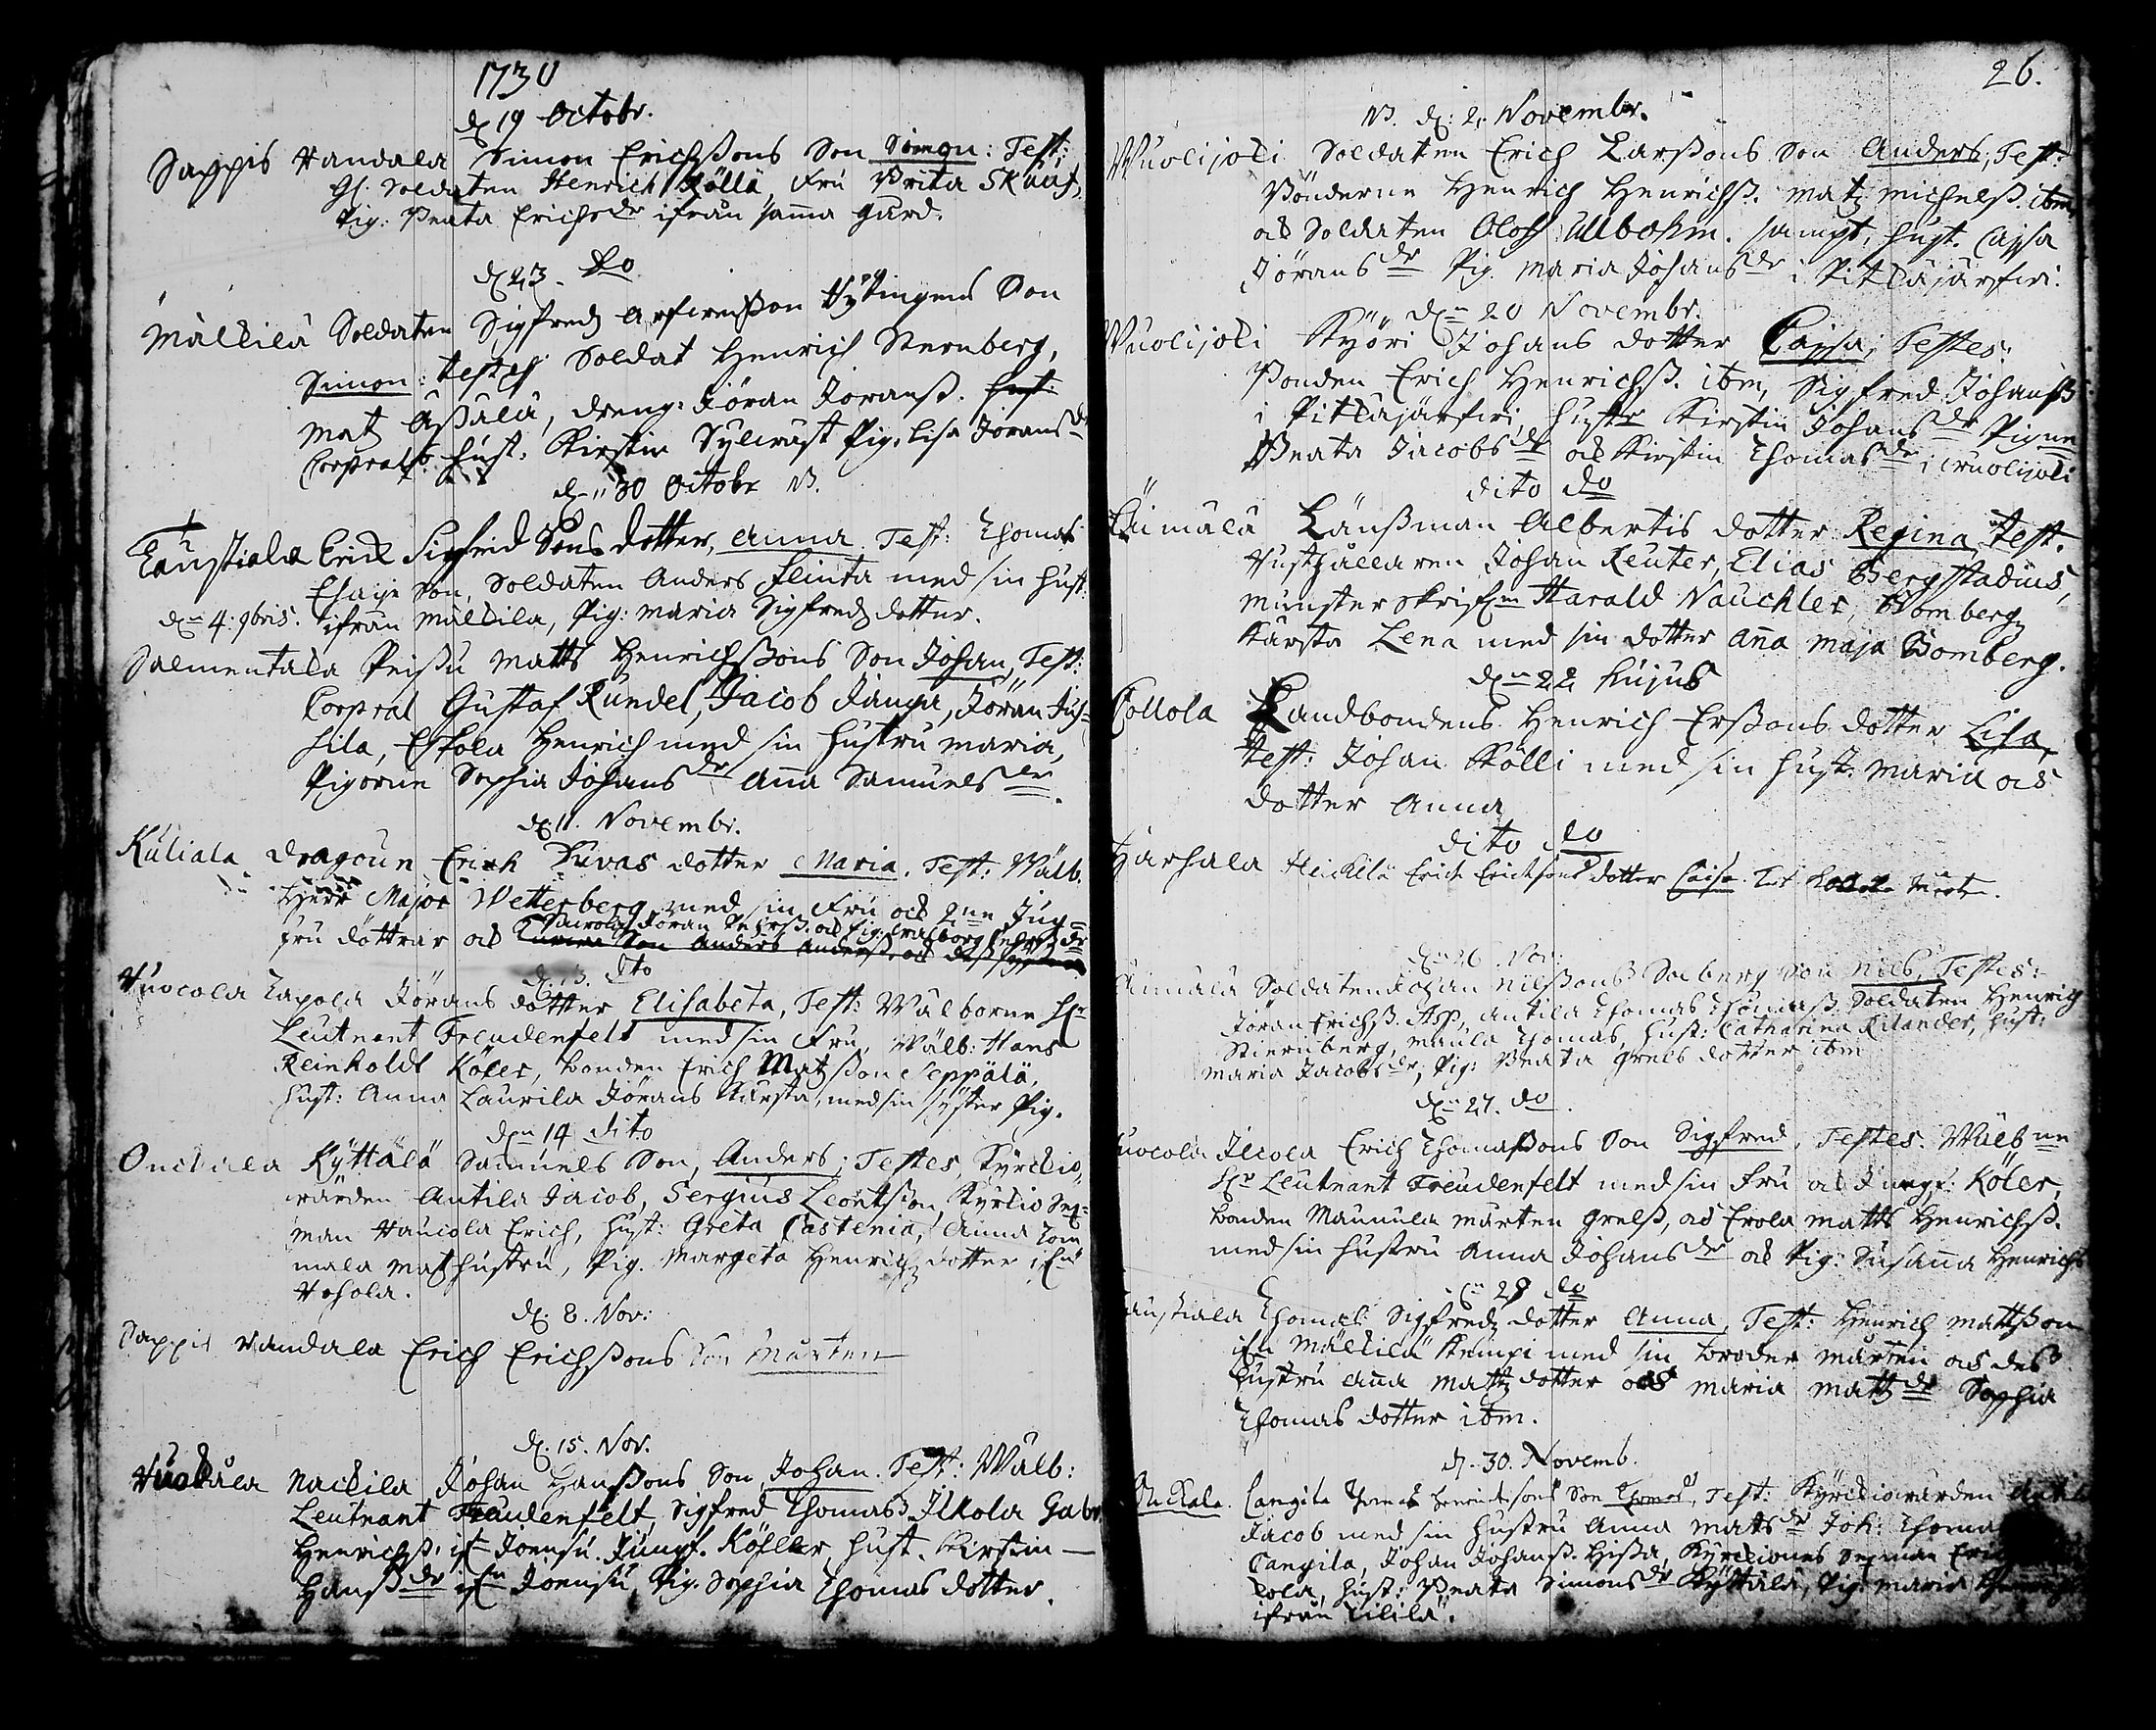 1730
d. 19 Octobr.
Sappis Vandala Simon Erichssons Son Simon: Test:
Gl. Soldaten Henrich Kölli, Fru Brita Skuuf,
Pig: Beata Erichsdr ifrån sama gård.
d 23. do
Mälkilä Soldaten Sigfred Son
Simon: testes Soldat Henrich Sternberg,
Matz Assula, dreng: Jöran Joranss.
Corprals hust: Kirstin Sylvrust Pig. Lisa Joransdr
dn 30 Octobr
Taustiala Erick Sigfrid Sons dotter, Anna. Test: Thomas
Esaije Son, Soldaten Anders Flinta med sin hust.
dn 4: 9bris. ifrån Mälkila, Pig: Maria Sigfredz dotter.
Salmentaka Peissu Matts Henrichssons Son Johan, Test:
Corpral Gustaf Rundel, Jacob Jampa, Jöran Jus-
sila, Eskola Henrich med sin hustru Maria,
Pigorne Sophia Johansdr Anna Samuelsdr.
d. 11. Novembr.
Kuliala dragoun Erich Kuvas dotter Maria. Test: Wälb.
Herr Major Wetterberg med sin Fru och 2ne Jung-
fru döttrar och
d. 13. dito
Vuocola Lapola Jörans dotter Elisabeta, Test: Wälborne Hr
Leutnant Freudenfelt med sin Fru, Wälb: Hans
Reinholdt Köler, bonden Erich Matzsson Seppälä,
hust: Anna Laurila Jörans Käresta, med sin syster Pig.
den 14 dito
Onckiala Kyttälä Samuels Son, Anders; Testes, Kyrckio-
wärden Antila Jacob, Sergius Leontsson, Kyrckio Sex-
man Haucola Erich, hust: Greta Castenia, Anna Tom
mala Matz hustru, Pig. Margeta Henrichz dotter
Hohola.
d. 8. Nov:
Sappis Vandala Erich Erichssons Son Mårten
d. 15. Nov.
Nackila Johan Hanssons Son Johan. Test: Wälb:
Leutnant Freudenfelt, Sigfred Thomass Ilkola Gabr
Henrichss. ifn Joensu. Jungf. Köhler, hust. Kirstin
Hanssdr ifn Joensu, Pig. Sophia Thomas dotter.
26.
d. 2. Novembr.
Wuolijoki Soldaten Erich Larssons Son Anders, Test:
Bönderne Henrich Henrichss. Matz Michelss. ibm,
och Soldaten Oloff Ullbohm. sampt, hust. Cajsa
Jöransdr Pig. Maria Johansdr i Pitkäjärfwi.
dn 20 Novembr.
Wuolijoki Kyöri Johans dotter Cajsa; Testes:
Bonden Erich Henrichss. ibm, Sigfred Johanss
i Pitkäjärfwi, hustr Kirstin Johansdr Pigne
Beata Jacobsdr och Kirstin Thomasdr i Wuolijoki
dito do
Länssman Albertis dotter Regina, Test.
Husthållaren Johan Reuter, Elias Bergstadius,
Munsterskrifn Harald Nauckler, Bombergz
Kärsta Lena med sin dotter Ana Maja Bomberg.
dn 22 hujus
Collola Landbondens Henrich Erssons dotter Lisa,
Test: Johan Kölli med sin hust: Maria och
dotter Anna
dito do
Heickilä Erich Erickssons dotter Caisa.
dn 26 Nov:
Soldaten Johan Nilssons Saberg Son Nils, Testes:
Jöran Erichss. Asp, Antila Thomas Thomass Soldaten Henrich
Stiernberg, Maula Thomas, hust: Catharina Kilander, hust:
Maria Jacobsdr, Pig: Beata Grels dotter ibm
dn 27. do
Ilcola Erich Thomassons Son Sigfred. Testes. Wälbne
Hr Leutnant Freudenfelt med sin Fru och Jungf: Köler,
bonden Maunula Mårten Grelss, och Erola Matts Henrichss.
med sin hustru Anna Johansdr och Pig: Susana Henrichs
dn 29 do
Taustiala Thomas Sigfredz dotter Anna, Test: Henrich Mattsson
ifn Mälkilä Kempi med sin broder Mårten och des
hustru Ana Mattz dotter och Maria Mattzdr Sophia
Thomas dotter ibm.
d. 30. Novemb.
Onckala. Cangila Thomas Henrickssons Son Thomas, Test: Kyrckiowärden Antila
Jacob med sin hustru Anna Matsdr Joh: Thoma
Cangila, Johan Johanss. Hissa, Kyrckiones Sexman Eric
kola, hust: Beata Simonsdr Kyttälä, Pig: Maria
ifrån Kilila.